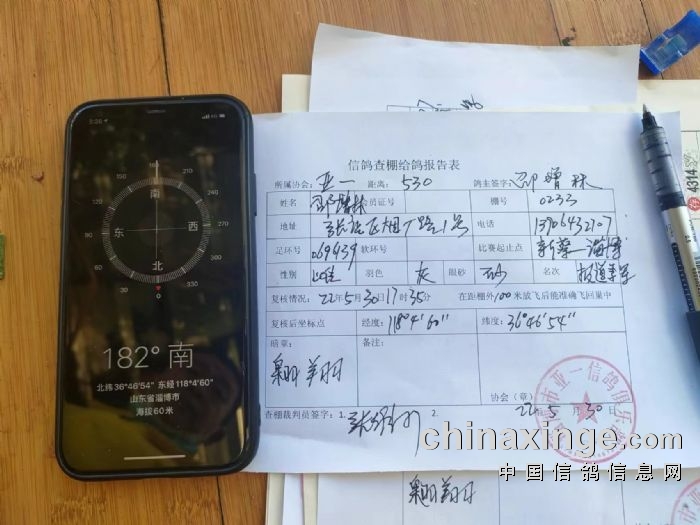 5:26
4G
0
30
60
90
120
150
180
210
240
270
300
330
南
东
西
北
0
182° 南
北纬 36°46'54" 东经 118°4'60"
山东省淄博市
海拔60米
信鸽查棚给鸽报告表
所属协会: 亚一 距离: 530 鸽主签字: 邵增林
姓名 邵增林 会员证号 棚号 0233
地址 路1号 电话
足环号 069439 软环号 比赛起止点
性别 雄 羽色 灰 眼砂 砂 名次
复核情况: 22年5月30日17时35分 在距棚外100米放飞后能准确飞回巢中
复核后坐标点 经度: 118°4'60" 纬度: 36°46'54"
暗章: 备注:
翱翔
协会(章)
22年5月30日
查棚裁判员签字: 1. 2.
市亚一信鸽俱乐
翱翔
4314
chinaxinge.com
中国信鸽信息网